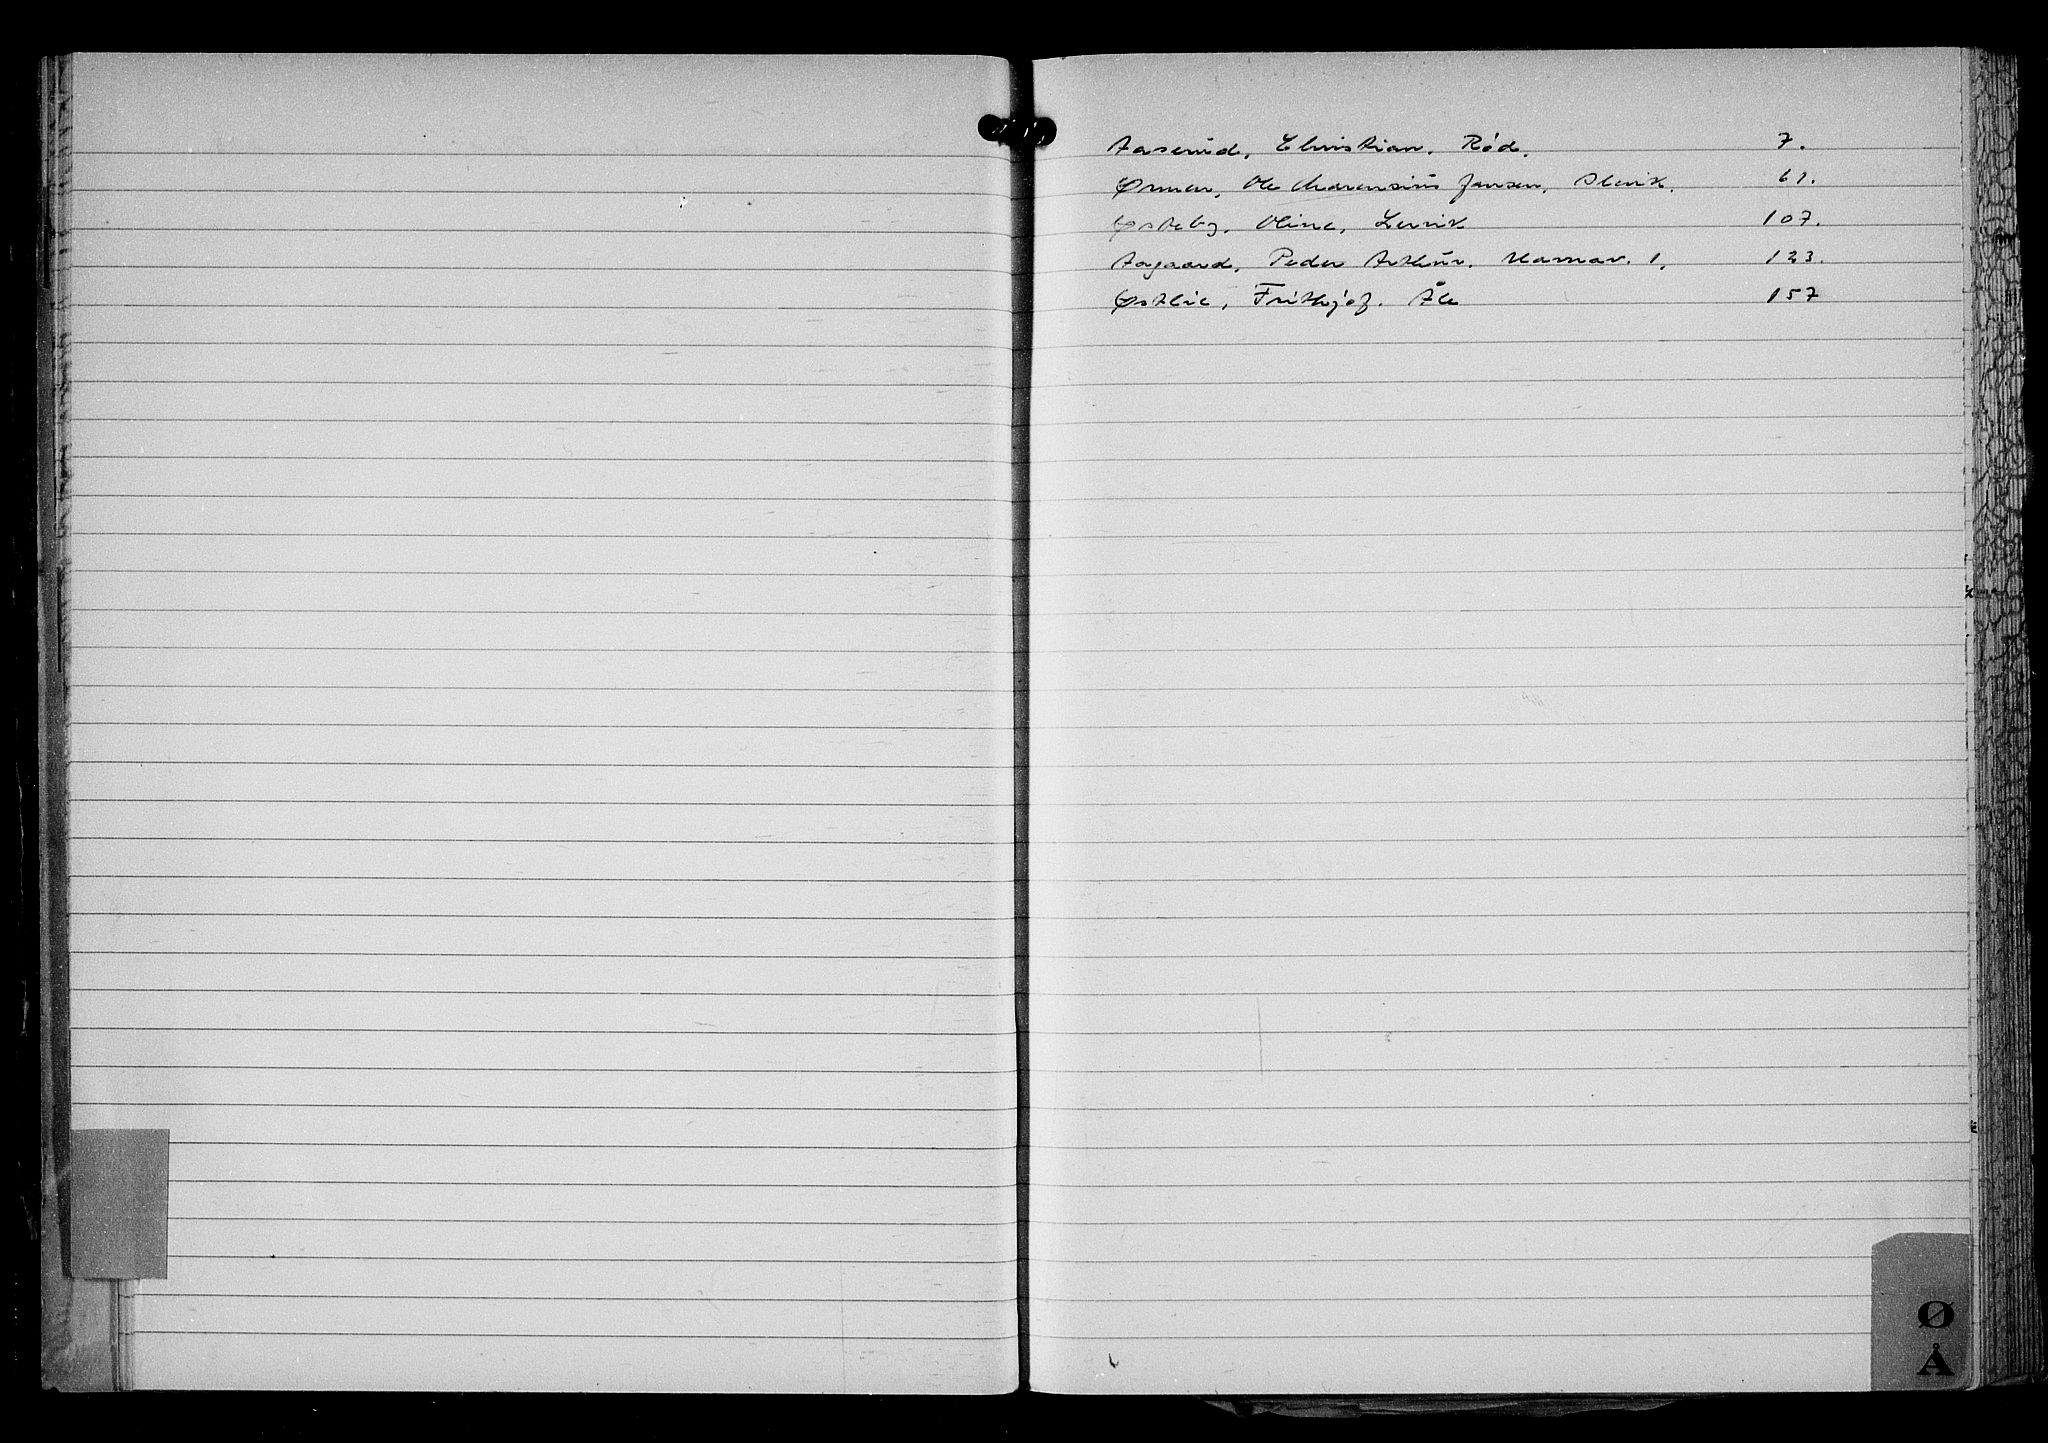 Aaserud, Christian. Rød. 7.
Ormen, Ole Marensius Jansen, Slevik. 61.
Østeby, Oline, Lervik 107.
Aagaard, Peder Arthur. 1. 123.
Østlie, Frithjof. Åle 157
Ø
Å